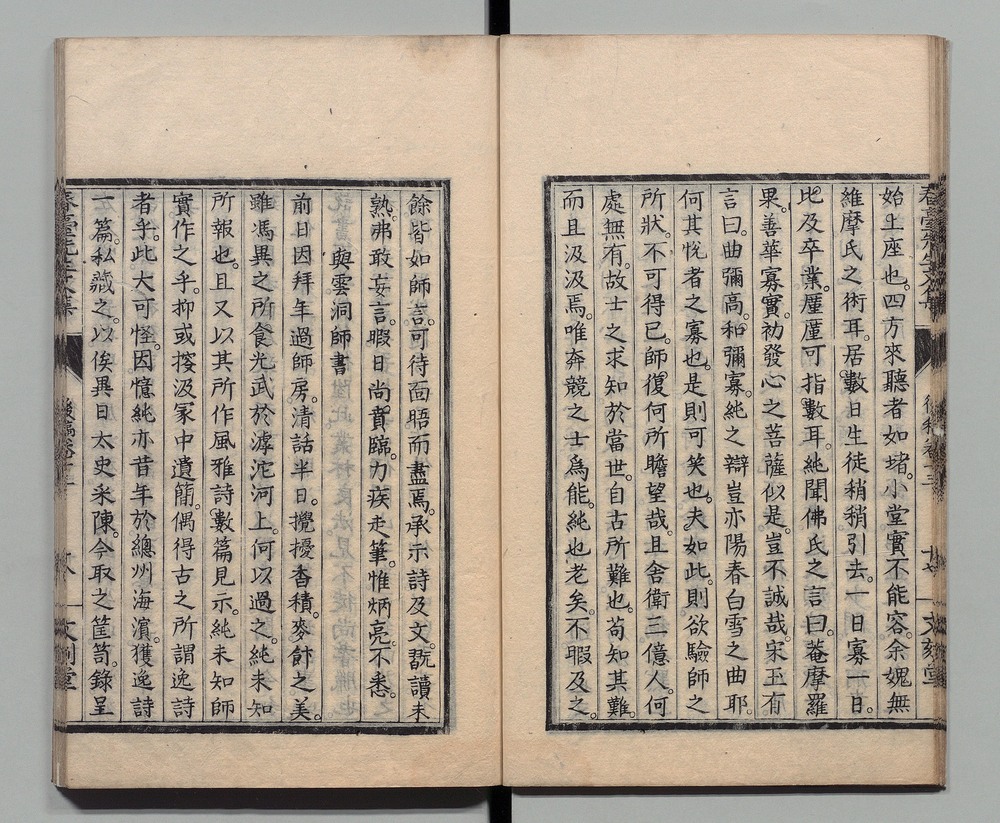 始上座也。四方來聽者如堵。小堂實不能容。余媿無
維摩氏之術耳。居數日生徒稍稍引去。一日寡一日。
比及卒業。厪厪可指數耳。純聞佛氏之言曰。菴摩羅
果。善華寡實。初發心之菩薩似是。豈不誠哉。宋玉有
言曰。曲彌高。和彌寡。純之辯豈亦陽春白雪之曲耶。
何其悅者之寡也。是則可笑也。夫如此。則欲驗師之
所狀。不可得已。師復何所瞻望哉。且舍衛三億人。何
處無有。故士之求知於當世。自古所難也。苟知其難。
而且汲汲焉。唯奔競之士爲能。純也老矣。不暇及之。
春臺先生文集 後稿卷十三 十七 文刻堂
餘皆如師言。可待面晤而盡焉。承示詩及文。翫讀未
熟。弗敢妄言。暇日尚賁臨。力疾走筆。惟炳亮。不悉。
與雲洞師書
前日因拜年過師房。清話半日。攪擾香積。麥飰之美。
雖馮異之所食光武於滹沱河上。何以過之。純未知
所報也。且又以其所作風雅詩數篇見示。純未知師
實作之乎。抑或按汲冢中遺簡。偶得古之所謂逸詩
者乎。此大可怪。因憶純亦昔年於總州海濵。獲逸詩
一篇。私藏之。以俟異日太史采陳。今取之筐笥。錄呈
春臺先生文集 後稿卷十三 十八 文刻堂